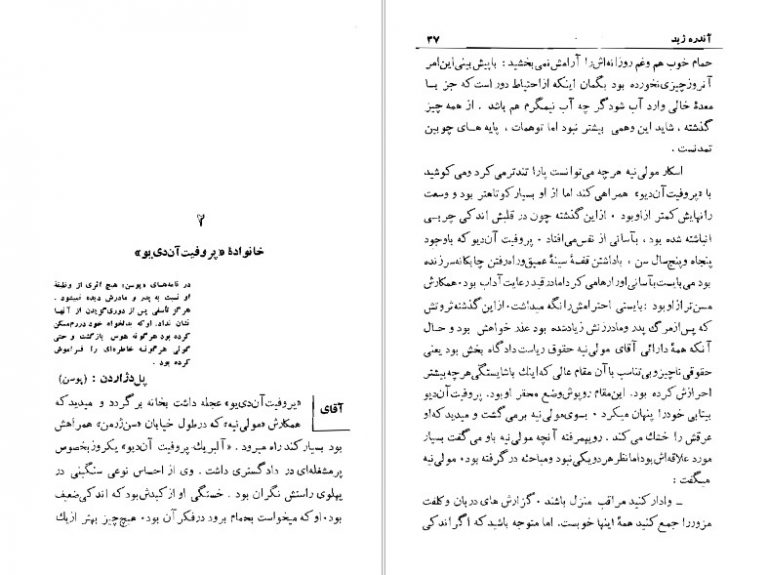 ۲
خانوادهٔ «پروفیت‌آن‌دی‌یو»
در نامه‌های «پوسن» هیچ اثری از وظیفهٔ
او نسبت به پدر و مادرش دیده نمیشود .
هرگز تأسفی پس از دوری‌گزیدن از آنها
نشان نداد. او که بدلخواه خود در رم مسکن
کرده بود هرگونه هوس بازگشت و حتی
گوئی هرگونه خاطره‌ای را فراموش
کرده بود .
پل دژاردن : (پوسن)
آقای «پروفیت‌آن‌دی‌یو» عجله داشت بخانه برگردد و میدید که
همکارش «مولی‌نیه» که در طول خیابان «سن‌ژرمن» همراهش
بود بسیار کند راه میرود . «آلبریك پروفیت آن‌دیو» یکروز بخصوص
پرمشغله‌ای در دادگستری داشت . وی از احساس نوعی سنگینی در
پهلوی راستش نگران بود . خستگی او از کبدش بود که اندکی ضعیف
بود٠ او که میخواست بحمام برود در فکر آن بود٠ هیچ چیز بهتر از یك
آندره ژید
۳۷
حمام خوب هم وغم روزانه‌اش را آرامش نمی‌بخشید : با پیش بینی این امر
آنروز چیزی نخورده بود بگمان اینکه از احتیاط دور است که جز با
معدهٔ خالی وارد آب شود گر چه آب نیمگرم هم باشد . از همه چیز
گذشته ، شاید این وهمی بیشتر نبود اما توهمات ، پایه های چوبین
تمدنست .
اسکار مولی‌نیه هرچه می‌توانست پارا تندتر می کرد ومی‌کوشید
با «پروفیت‌آن‌دیو» همراهی کند اما از او بسیار کوتاهتر بود و وسعت
رانهایش کمتر از او بود ٠ از این گذشته چون در قلبش اندکی چربی
انباشته شده بود، بآسانی از نفس می‌افتاد ٠ پروفیت آن‌دیو که باوجود
پنجاه و پنج سال سن ، با داشتن قفسهٔ سینهٔ عمیق و راه‌رفتن چابکانه سرزنده
بود می‌بایست بآسانی او را رها می‌کرد اما در قید رعایت آداب بود ٠ همکارش
مسن‌تر از او بود : بایستی احترامش را نگه میداشت٠ از این گذشته ثروتش
که پس از مرگ پدر و مادر زنش زیاد شده بود عذر خواهش بود و حال
آنکه همهٔ دارائی آقای مولی‌نیه حقوق ریاست دادگاه بخش بود یعنی
حقوقی ناچیز و بی تناسب با آن مقام عالی که اینك با شایستگی هرچه بیشتر
احراز ش کرده بود. این مقام روپوش وضع محقر او بود. پروفیت آن‌دیو
بیتابی خود را پنهان میکرد ٠ بسوی مولی‌نیه برمی‌گشت و میدید که او
عرقش را خشك می کند . رویهمرفته آنچه مولی‌نیه باو می‌گفت بسیار
مورد علاقه‌اش بود اما نظر هر دو یکی نبود و مباحثه در گرفته بود٠ مولی‌نیه
میگفت :
ــ وادار کنید مراقب منزل باشند ٠ گزارش های دربان و کلفت
مزور را جمع کنید همهٔ اینها خوبست. اما متوجه باشید که اگر اندکی